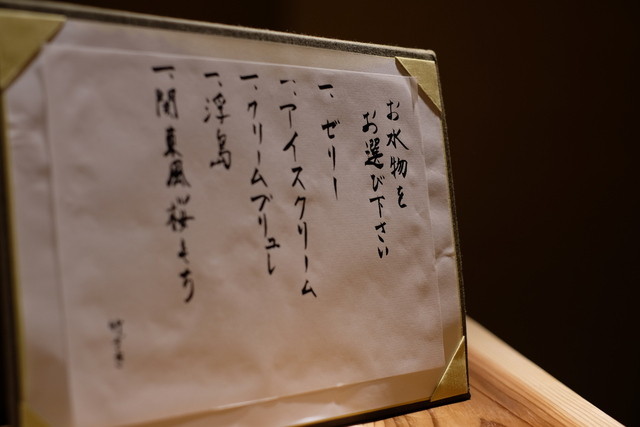 お水物を
お選び下さい
一、ゼリー
一、アイスクリーム
一、クリームブリュレ
一、浮島
一、関東風桜もち